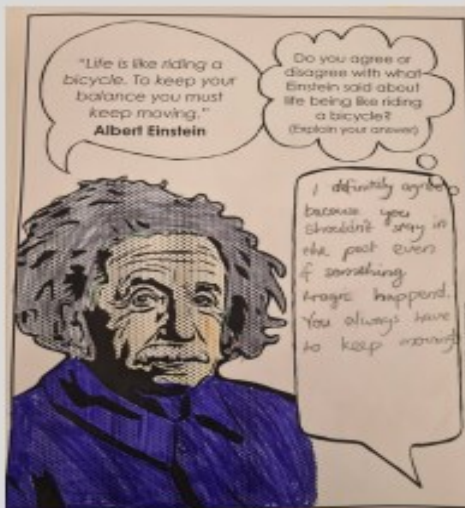 "Life is like riding a
bicycle. To keep your
balance you must
keep moving."
Albert Einstein
Do you agree or
disagree with what
Einstein said about
life being like riding
a bicycle?
(Explain your answer)
I definitely agree
because you
shouldn't stay in
the past even
if something
tragic happend.
You always have
to keep moving